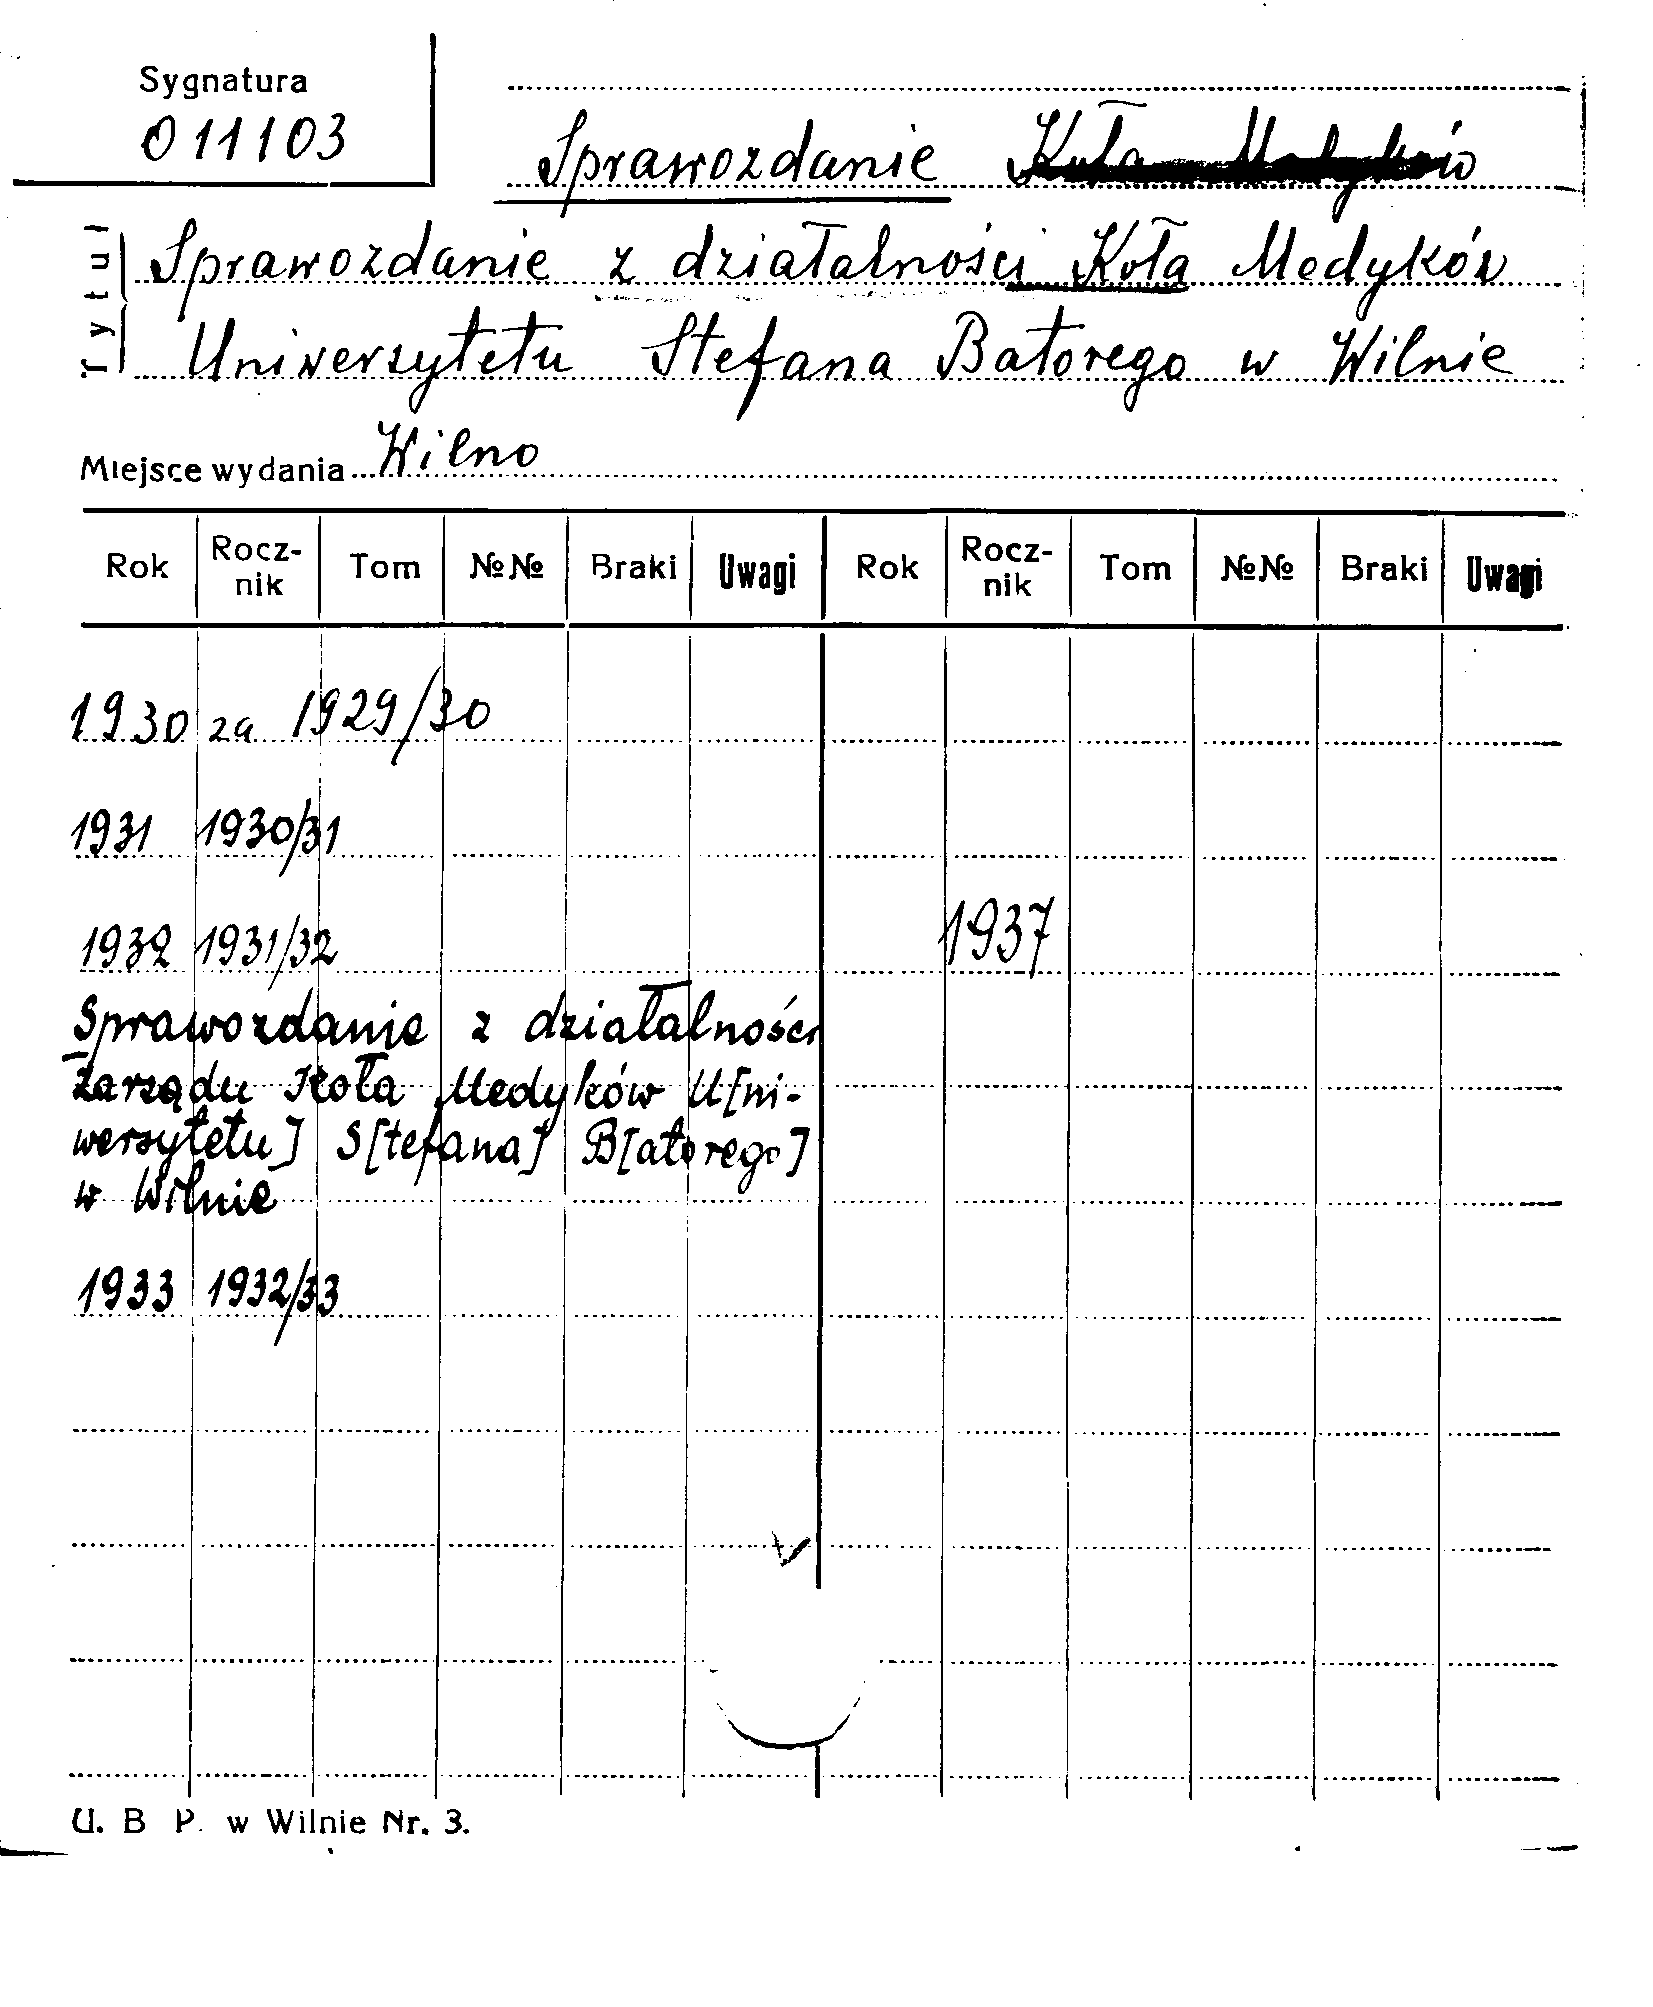 Sygnatura
011103
Sprawozdanie Koła Medyków
Tytuł
Sprawozdanie z działalności Koła Medyków
Uniwersytetu Stefana Batorego w Wilnie
Miejsce wydania Wilno
Rok Rocz-nik Tom №№ Braki Uwagi Rok Rocz-nik Tom №№ Braki Uwagi
1930 za 1929/30
1931 1930/31
1932 1931/32 1937
Sprawozdanie z działalności
Zarządu Koła Medyków U[ni-
wersytetu] S[tefana] B[atorego]
w Wilnie
1933 1932/33
U. B P. w Wilnie Nr. 3.